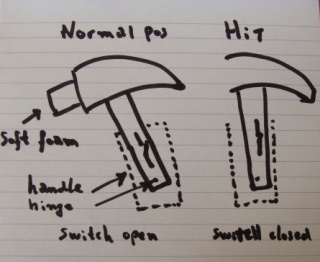 Normal pos
Hit
Soft foam
handle
hinge
Switch open
switch closed